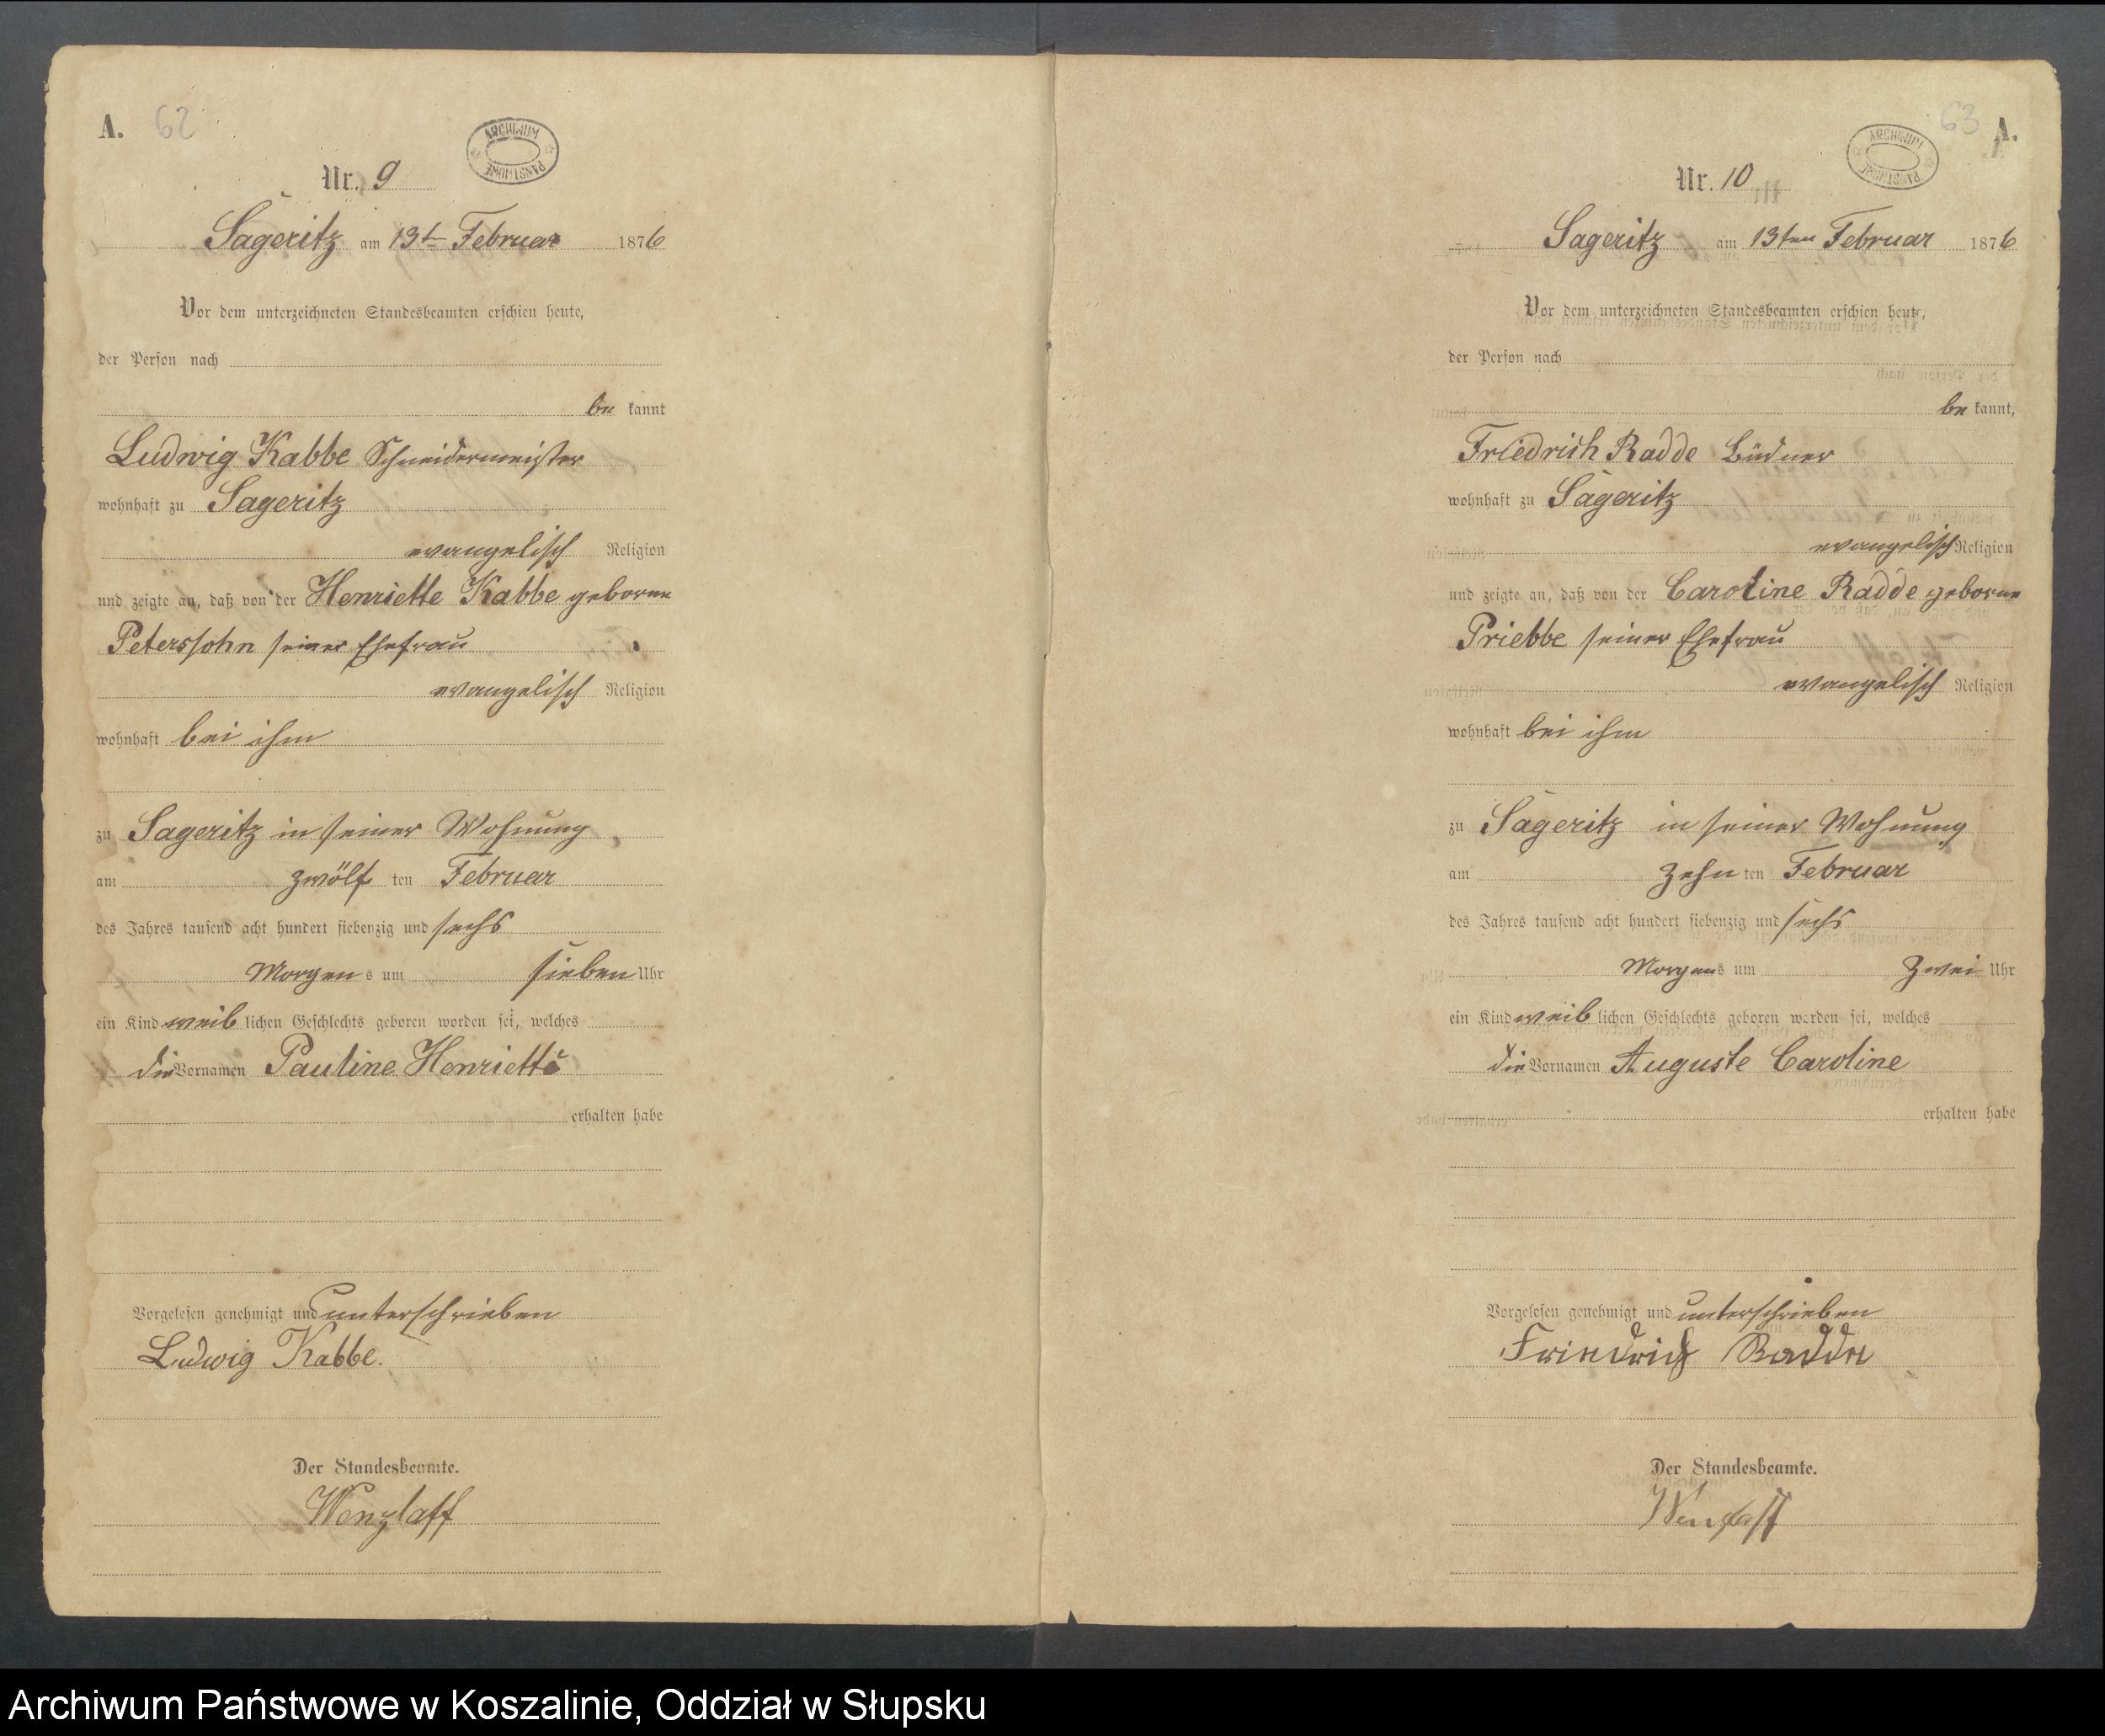 A. 62
ARCHIWUM PAŃSTWOWE
Nr. 9
Sageritz am 13t Februar 1876
Vor dem unterzeichneten Standesbeamten erschien heute,
der Person nach
be kannt
Ludwig Kabbe Schneidermeister
wohnhaft zu Sageritz
evangelisch Religion
und zeigte an, daß von der Henriette Kabbe geborne
Peterssohn seiner Ehefrau
evangelisch Religion
wohnhaft bei ihm
zu Sageritz in seiner Wohnung
am zwölf ten Februar
des Jahres tausend acht hundert siebenzig und sechs
Morgen s um sieben Uhr
ein Kind weib lichen Geschlechts geboren worden sei, welches
die Vornamen Pauline Henriette
erhalten habe
Vorgelesen genehmigt und unterschrieben
Ludwig Kabbe.
Der Standesbeamte.
Wenzlaff
63 A.
ARCHIWUM PAŃSTWOWE
Nr. 10
Sageritz am 13ten Februar 1876
Vor dem unterzeichneten Standesbeamten erschien heute,
der Person nach
be kannt,
Friedrich Radde Büdner
wohnhaft zu Sageritz
evangelisch Religion
und zeigte an, daß von der Caroline Radde geborne
Priebbe seiner Ehefrau
evangelisch Religion
wohnhaft bei ihm
zu Sageritz in seiner Wohnung
am zehn ten Februar
des Jahres tausend acht hundert siebenzig und sechs
Morgens um zwei Uhr
ein Kind weib lichen Geschlechts geboren worden sei, welches
die Vornamen Auguste Caroline
erhalten habe
Vorgelesen genehmigt und unterschrieben
Friedrich Radde
Der Standesbeamte.
Wenzlaff
Archiwum Państwowe w Koszalinie, Oddział w Słupsku